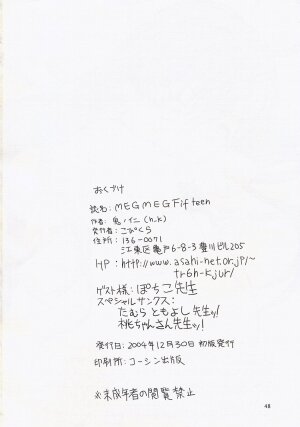 おくづけ
誌名: MEGMEGFifteen
作者: 鬼ノ仁 (n_k)
発行者: こぴくら
住所: 136-0071
江東区亀戸6-8-3 豊川ビル205
HP: http://www.asahi-net.or.jp/~
tr6h-kjur/
ゲスト様: ぽちこ先生
スペシャルサンクス:
たむらともよし先生ッ!
桃ちゃんさん先生ッ!
発行日: 2004年12月30日 初版発行
印刷所: コーシン出版
※未成年者の閲覧禁止
48